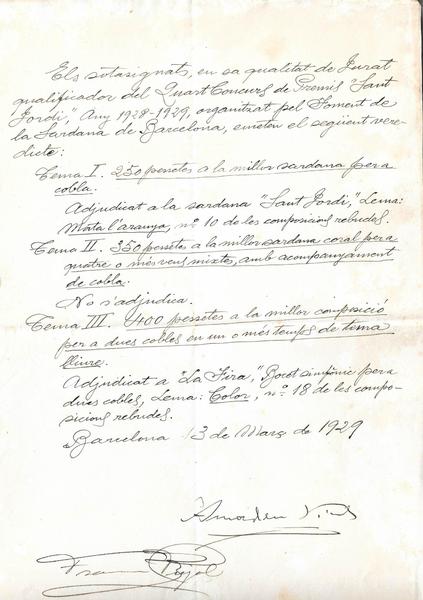 Els sotasignats, en sa qualitat de Jurat
qualificador del Quart Concurs de Premis "Sant
Jordi," Any 1928-1929, organitzat pel Foment de
la Sardana de Barcelona, emeten el següent vere-
dicte:
Tema I. 250 pessetes a la millor sardana per a
cobla.
Adjudicat a la sardana "Sant Jordi," Lema:
Mata l'aranya, nº 10 de les composicions rebudes.
Tema II. 350 pessetes a la millor sardana coral per a
quatre o més veus mixtes, amb acompanyament
de cobla.
No s'adjudica.
Tema III. 400 pessetes a la millor composició
per a dues cobles en un o més temps de tema
lliure.
Adjudicat a "La Fira," Bocet simfònic per a
dues cobles, Lema: Color, nº 18 de les compo-
sicions rebudes.
Barcelona 13 de Març de 1929
Amadeu
Pujol